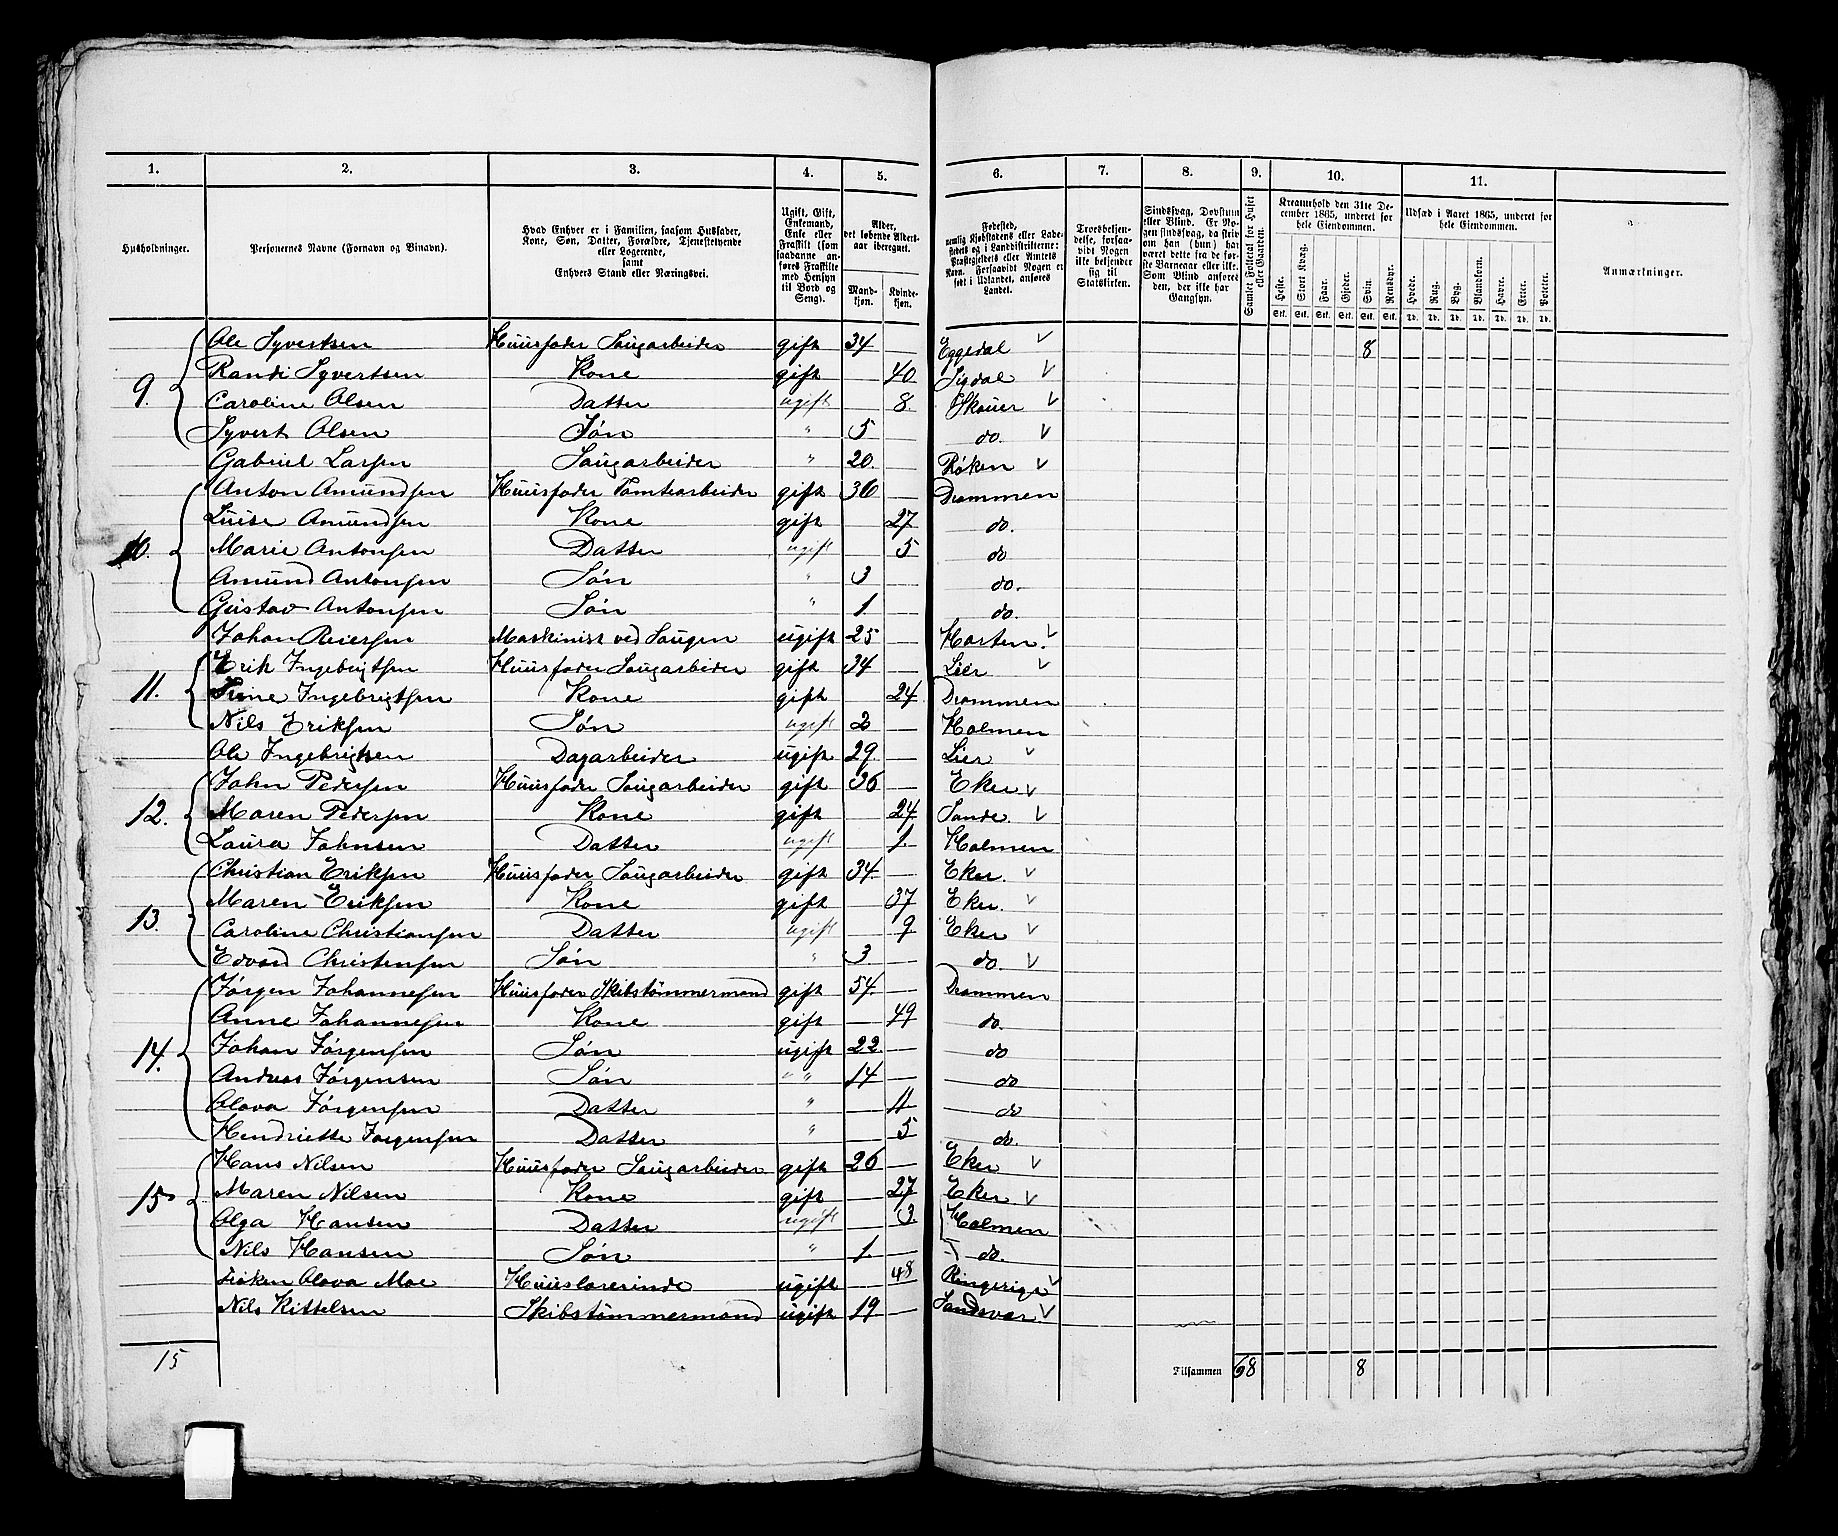 1. 2. 3. 4. 5. 6. 7. 8. 9. 10. 11.
Husholdninger.
Personernes Navne (Fornavn og Binavn).
Hvad Enhver er i Familien, saasom Husfader, Kone, Søn, Datter, Forældre, Tjenestetyende eller Logerende, samt Enhvers Stand eller Næringsvei.
Ugift, Gift, Enkemand, Enke eller Fraskilt (som saadanne anføres Fraskilte med Hensyn til Bord og Seng).
Alder, det løbende Aldersaar iberegnet.
Mandkjøn. Kvindekjøn.
Fødested, nemlig Kjøbstadens eller Ladestedets og i Landdistrikterne: Præstegjeldets eller Amtets Navn. Forsaavidt Nogen er født i Udlandet, anføres Landet.
Troesbekjendelse, forsaavidt Nogen ikke bekjender sig til Statskirken.
Sindssvag, Døvstum eller Blind. Er Nogen sindssvag, da skriv om han (hun) har været dette fra de første Barneaar eller ikke. Som Blind anføres den, der ikke har Gangsyn.
Samlet Folketal for Huset eller Gaarden.
Kreaturhold den 31te December 1865, underet for hele Eiendommen.
Heste. Stort Kvæg. Faar. Gjeder. Svin. Rensdyr.
Stk. Stk. Stk. Stk. Stk. Stk.
Udsæd i Aaret 1865, underet for hele Eiendommen.
Hvede. Rug. Byg. Blandkorn. Havre. Erter. Poteter.
Td. Td. Td. Td. Td. Td. Td.
Anmærkninger.
Ole Syvertsen Huusfader Saugarbeider gift 34 Eggedal 8
9. Randi Syvertsen Kone gift 40 Sigdal
Caroline Olsen Datter ugift 8 Skouer
Syvert Olsen Søn " 5 do.
Gabriel Larsen Saugarbeider " 20. Røken
Anton Amundsen Huusfader Tomtearbeider gift 36 Drammen
Luise Amundsen Kone gift 27 do.
10. Marie Antonsen Datter ugift 5 do
Amund Antonsen Søn " 3 do.
Gustav Antonsen Søn " 1 do.
Johan Reiersen Maskinist ved Saugen ugift 25 Horten.
Erik Ingebrigtsen Huusfader Saugarbeider gift 34 Lier
11. Trine Ingebrigtsen Kone gift 24 Drammen
Nils Eriksen Søn ugift 2 Holmen
Ole Ingebrigtsen Dagarbeider ugift 29. Lier
John Pedersen Huusfader Saugarbeider gift 36 Eker
12. Maren Pedersen Kone gift 24 Sande.
Laura Johnsen Datter ugift 1. Holmen
Christian Eriksen Huusfader Saugarbeider gift 34. Eker.
Maren Eriksen Kone gift 37 Eker.
13. Caroline Christiansen Datter ugift 9 Eker
Edvard Christensen Søn " 3 do.
Jørgen Johannesen Huusfader Skibstømmermand gift 54. Drammen
Anne Johannesen Kone gift 49 do.
14. Johan Jørgensen Søn ugift 22. do
Andreas Jørgensen Søn " " 14 do
Olava Jørgensen Datter " 11 do
Hendriette Jørgensen Datter " 5 do.
Hans Nilsen Huusfader Saugarbeider gift 26 Eker
15 Maren Nilsen Kone gift 27 Eker
Olga Hansen Datter ugift 3. Holmen
Nils Hansen Søn " 1. do.
Frøken Olava Moe Huuslærerinde ugift 48 Ringerige
Nils Kittelsen Skibstømmermand ugift 19 Sandsvær.
15 Tilsammen 68 8